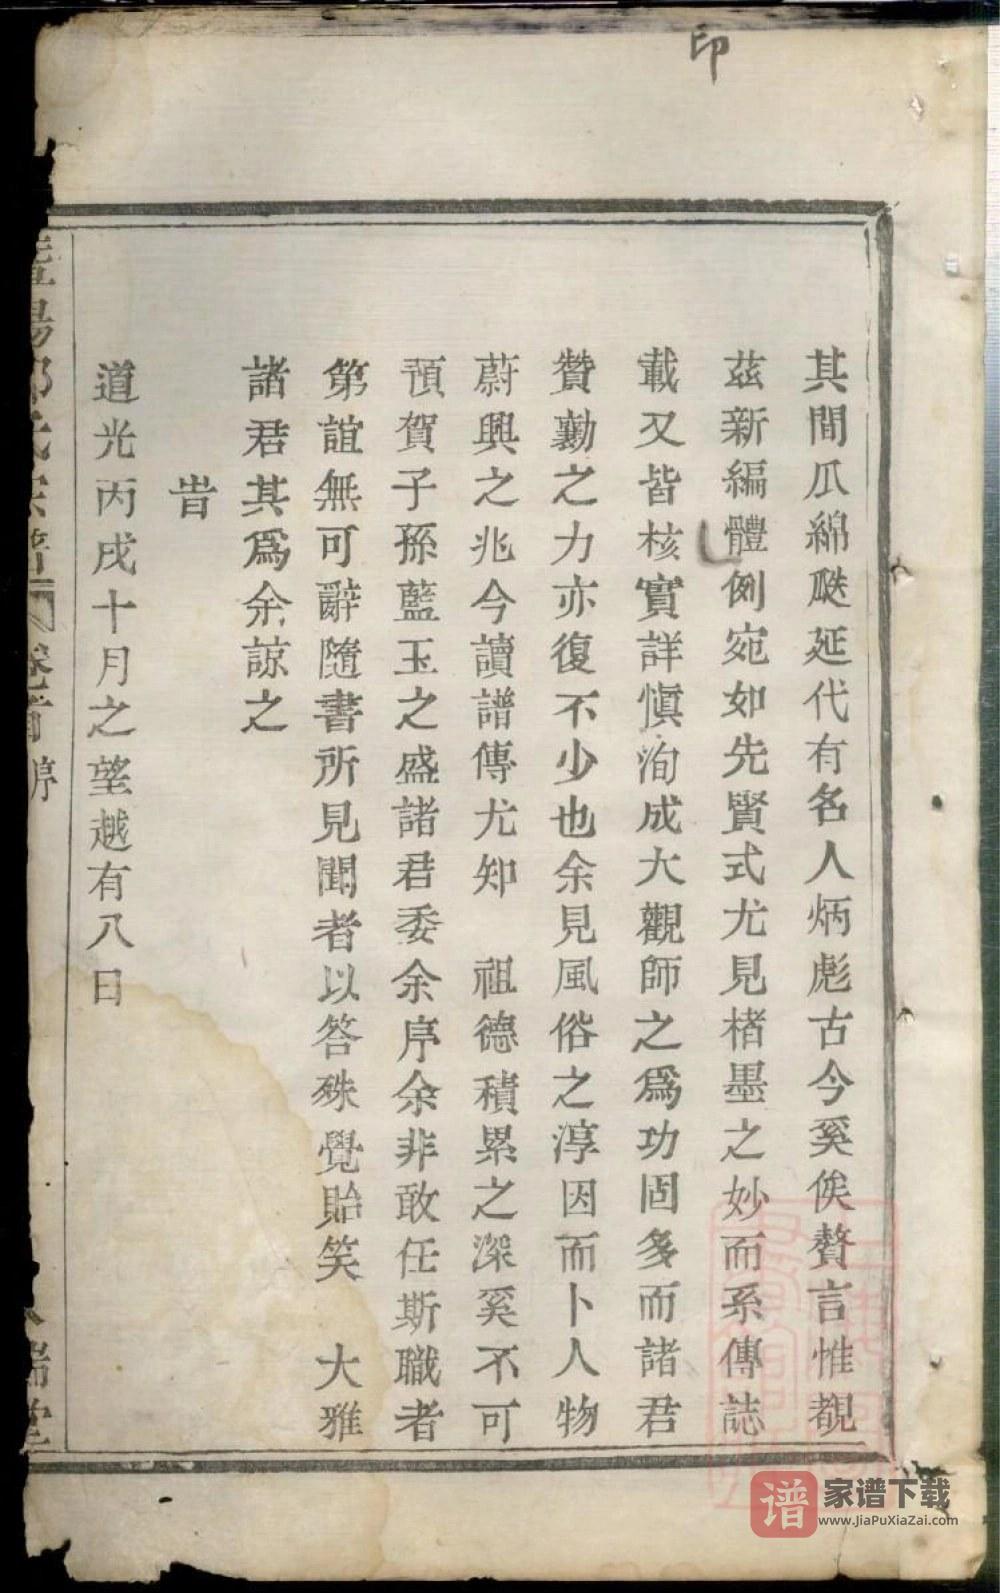 印
其間瓜綿瓞延代有名人炳彪古今奚俟贅言惟覩
茲新編體例宛如先賢式尤見楮墨之妙而系傳誌
載又皆核實詳愼洵成大觀師之爲功固多而諸君
贊勷之力亦復不少也余見風俗之淳因而卜人物
蔚興之兆今讀譜傳尤知　祖德積累之深奚不可
預賀子孫藍玉之盛諸君委余序余非敢任斯職者
第誼無可辭隨書所見聞者以答殊覺貽笑　大雅
諸君其爲余諒之
旹
道光丙戌十月之望越有八日
陽 氏宗譜 卷之首 序 堂
譜 家谱下载
www.JiaPuXiaZai.com